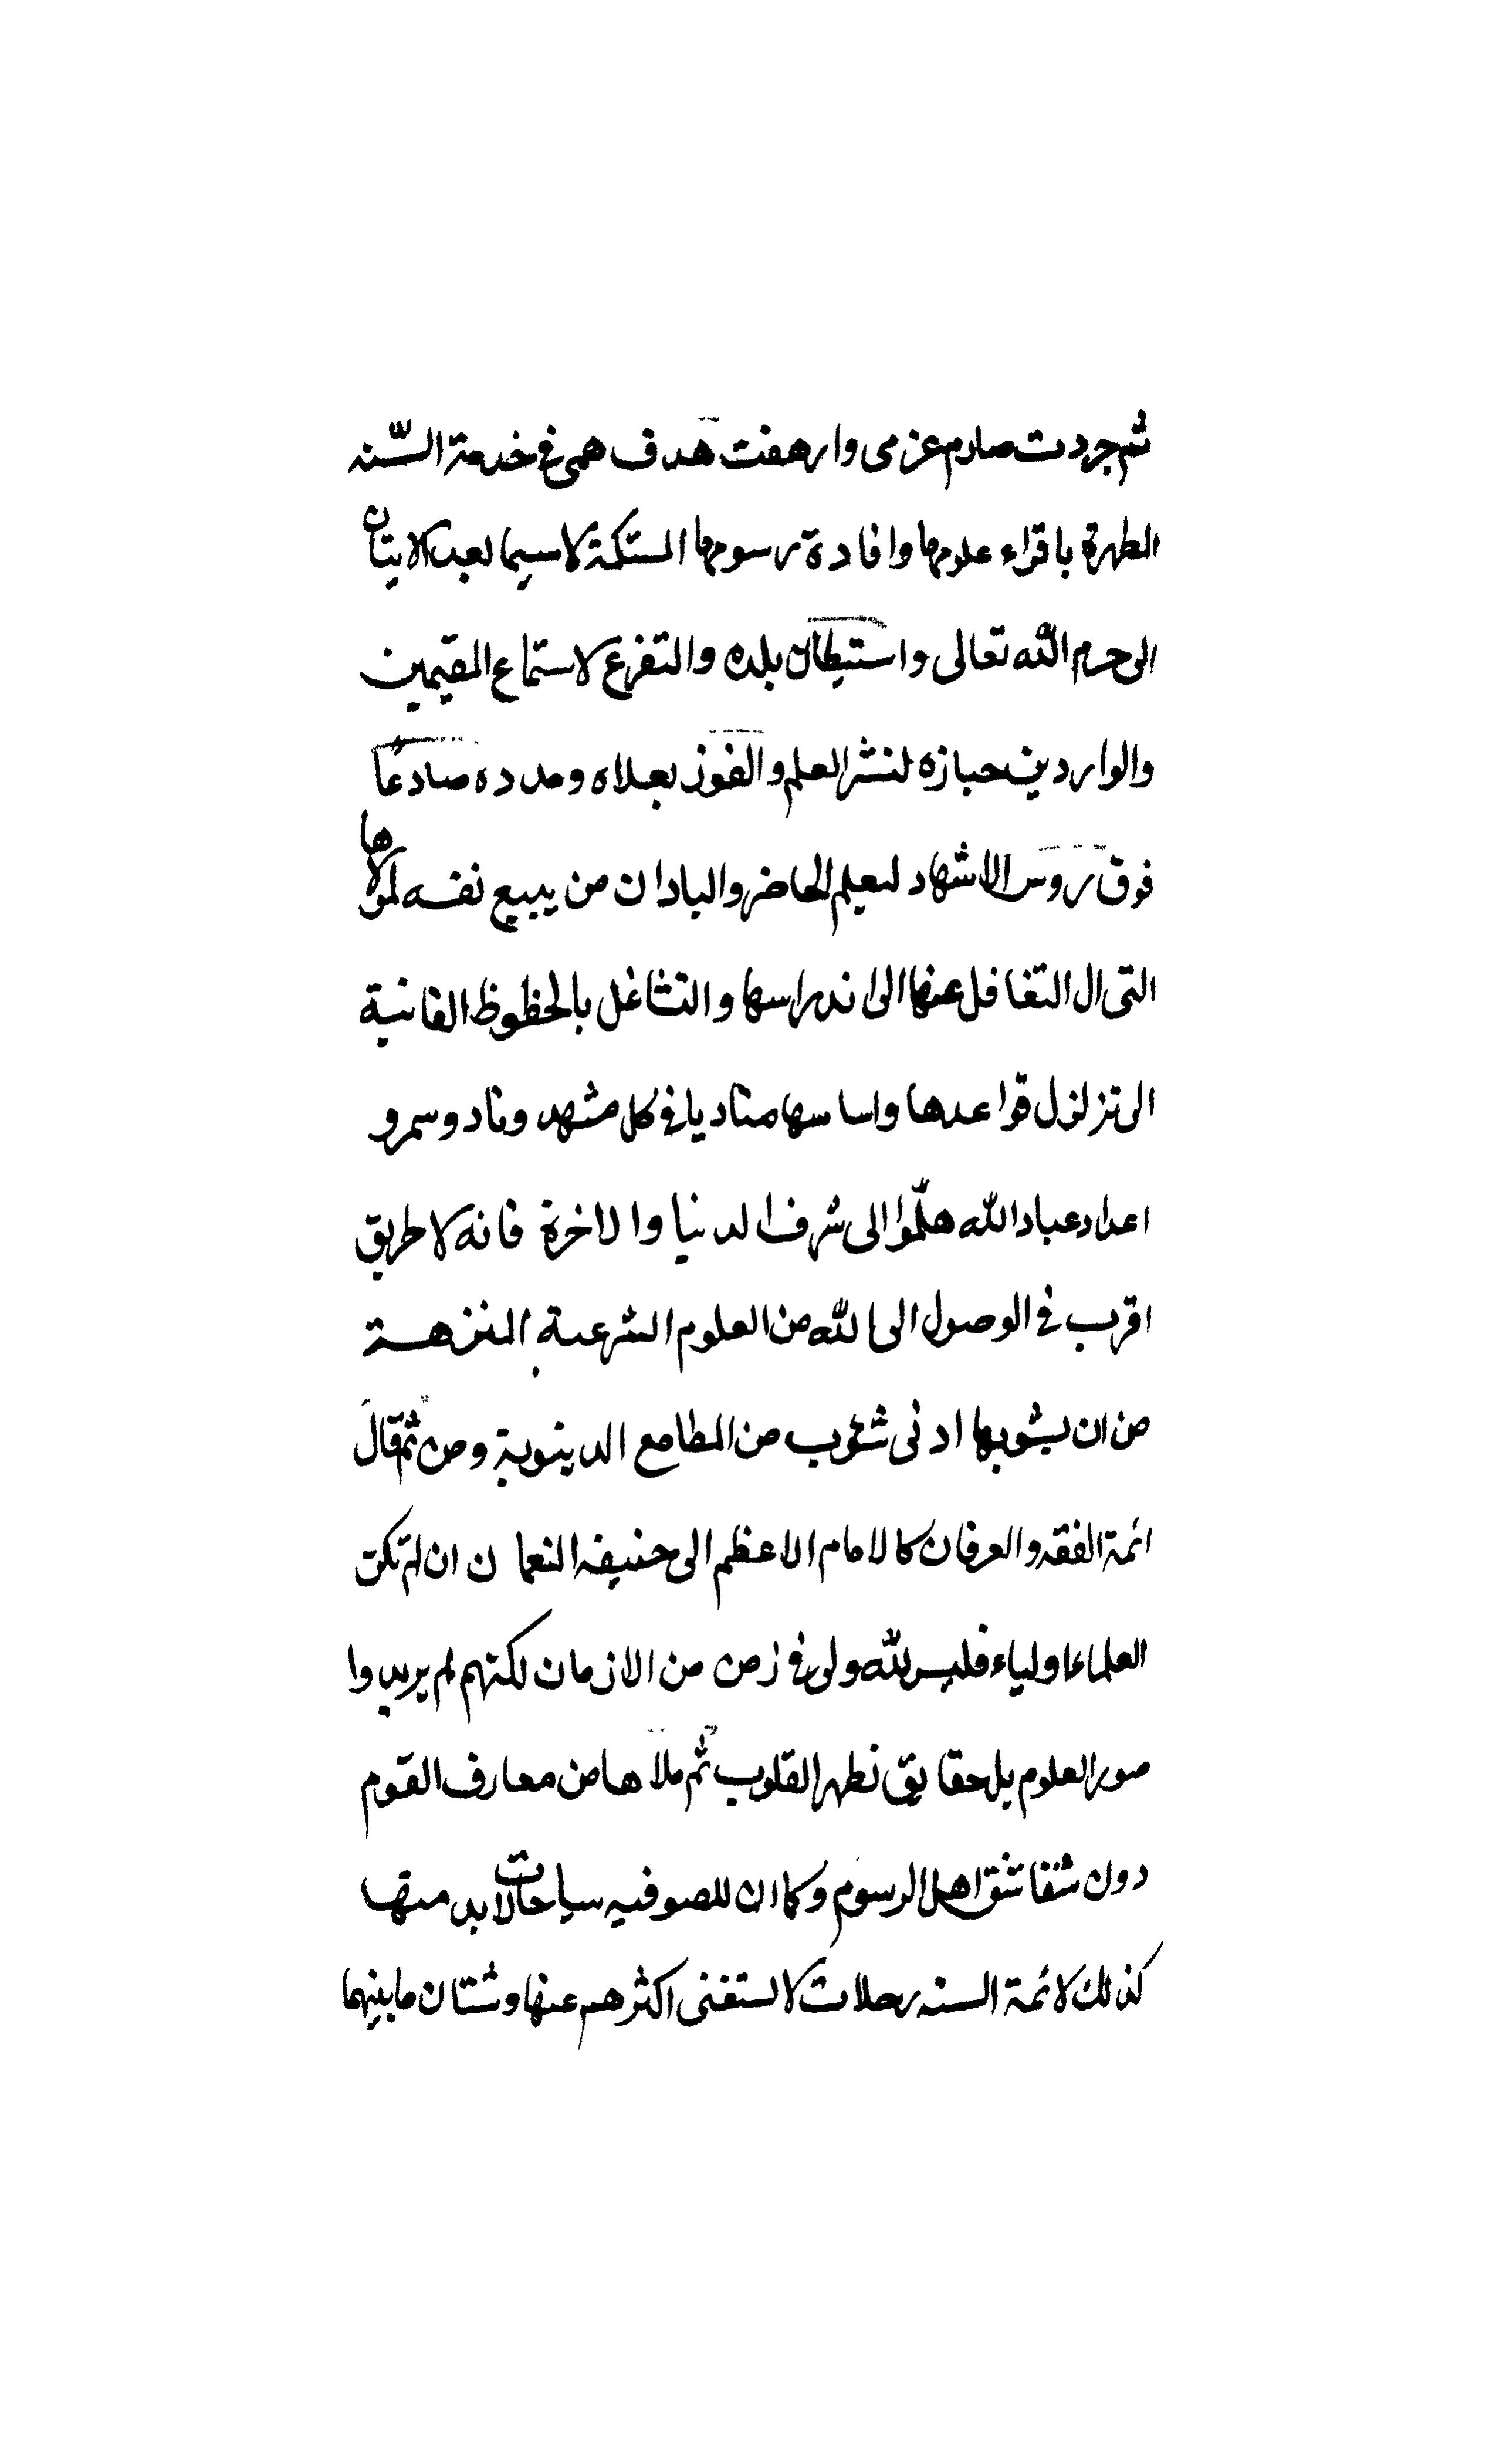 ثم جردت صارم عزمى وارهفت هدف هممى فى خدمة السّنه
المطهرة باقراء علومها وافادة رسومها المستكمة لاسيما بعد الاتيان
الى حرم الله تعالى واستيطان بلده والتفرغ لاستماع المقيمين
والواردين حيازه لنشر العلم والفوز بعلاه ومدده صادعًا
فوق روس الاشهاد ليعلم الحاضر والبادان من يبيع نفسه لمولاها
التى ال التغافل عنها الى اندراسها والتشاغل بالحظوظ الفانية
الى تزلزل قواعدها واساسها مناديا فى كل مشهد وناد وسمر و
اعداد عباد الله هلمّوا الى شرف الدنيا والاخرة فانه لا طريق
اقرب فى الوصول الى الله من العلوم الشرعية المنزهة
من ان يشوبها ادنى شوب من المطامع الدينوية ومن ثم قال
ائمة الفقه والعرفان كالامام الاعظم الى حنيفه النعمان ان لم تكن
العلماء اولياء فليس لله ولى فى زمن من الازمان لكنهم لم يريدوا
صور العلوم بل حقايق تطهر القلوب ثم ملاها من معارف القوم
دون شقاشق اهل الرسوم وكما ان للصوفيه سياحات لابد منها
كذلك لائمة السنه رحلات لا يستغنى اكثرهم عنها وشتان ما بينهما